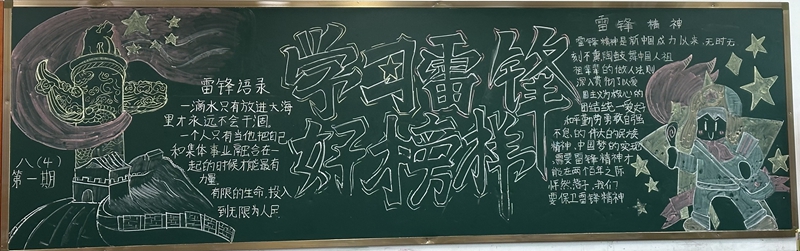 八(4)
第一期
雷锋语录
一滴水只有放进大海
里才永远不会干涸,
一个人只有当他把自己
和集体事业融合在一
起的时候才能最有
力量。
有限的生命,投入
到无限为人民
学习雷锋
好榜样
雷锋精神
雷锋精神是新中国成力以来,无时无
刻不熏陶鼓舞中国人祖
祖辈辈的做人法则
深入贯彻以爱
国主义为核心的
团结统一爱好
和平勤劳勇敢自强
不息的伟大的民族
精神,中国梦的实现
需要雷锋精神才
能在两个百年之际
我们
要保卫雷锋精神